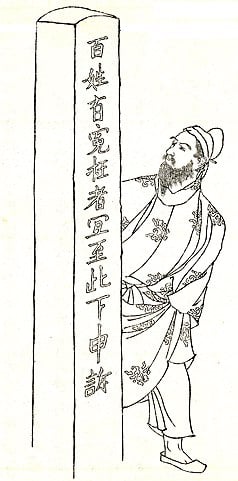 百姓有冤枉者宜至此下申訴